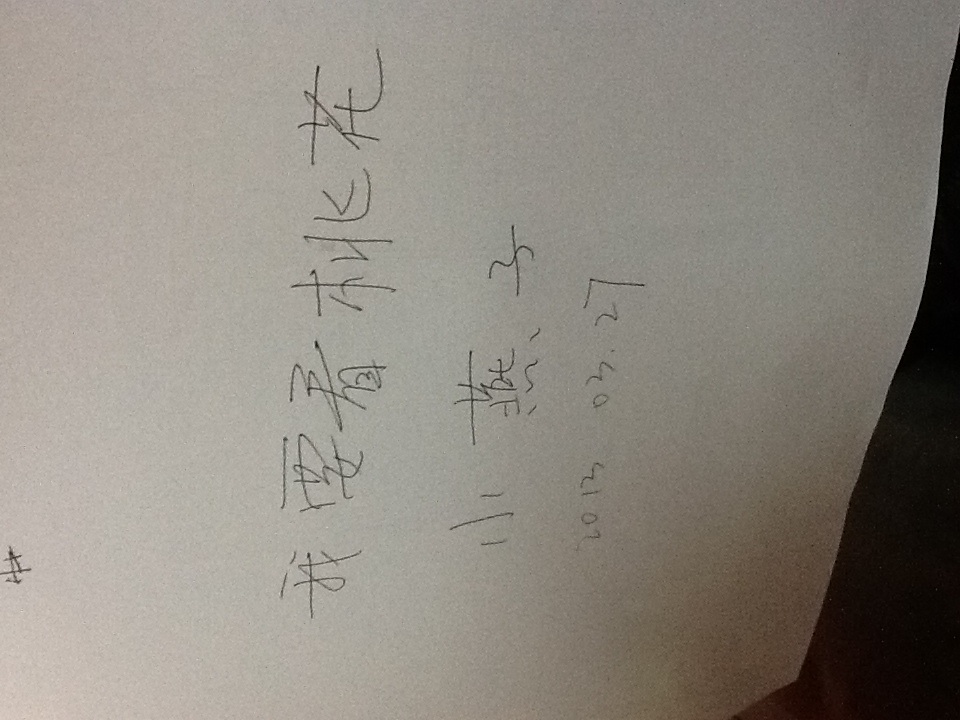 我要看桃花
小燕子
2013 03.27